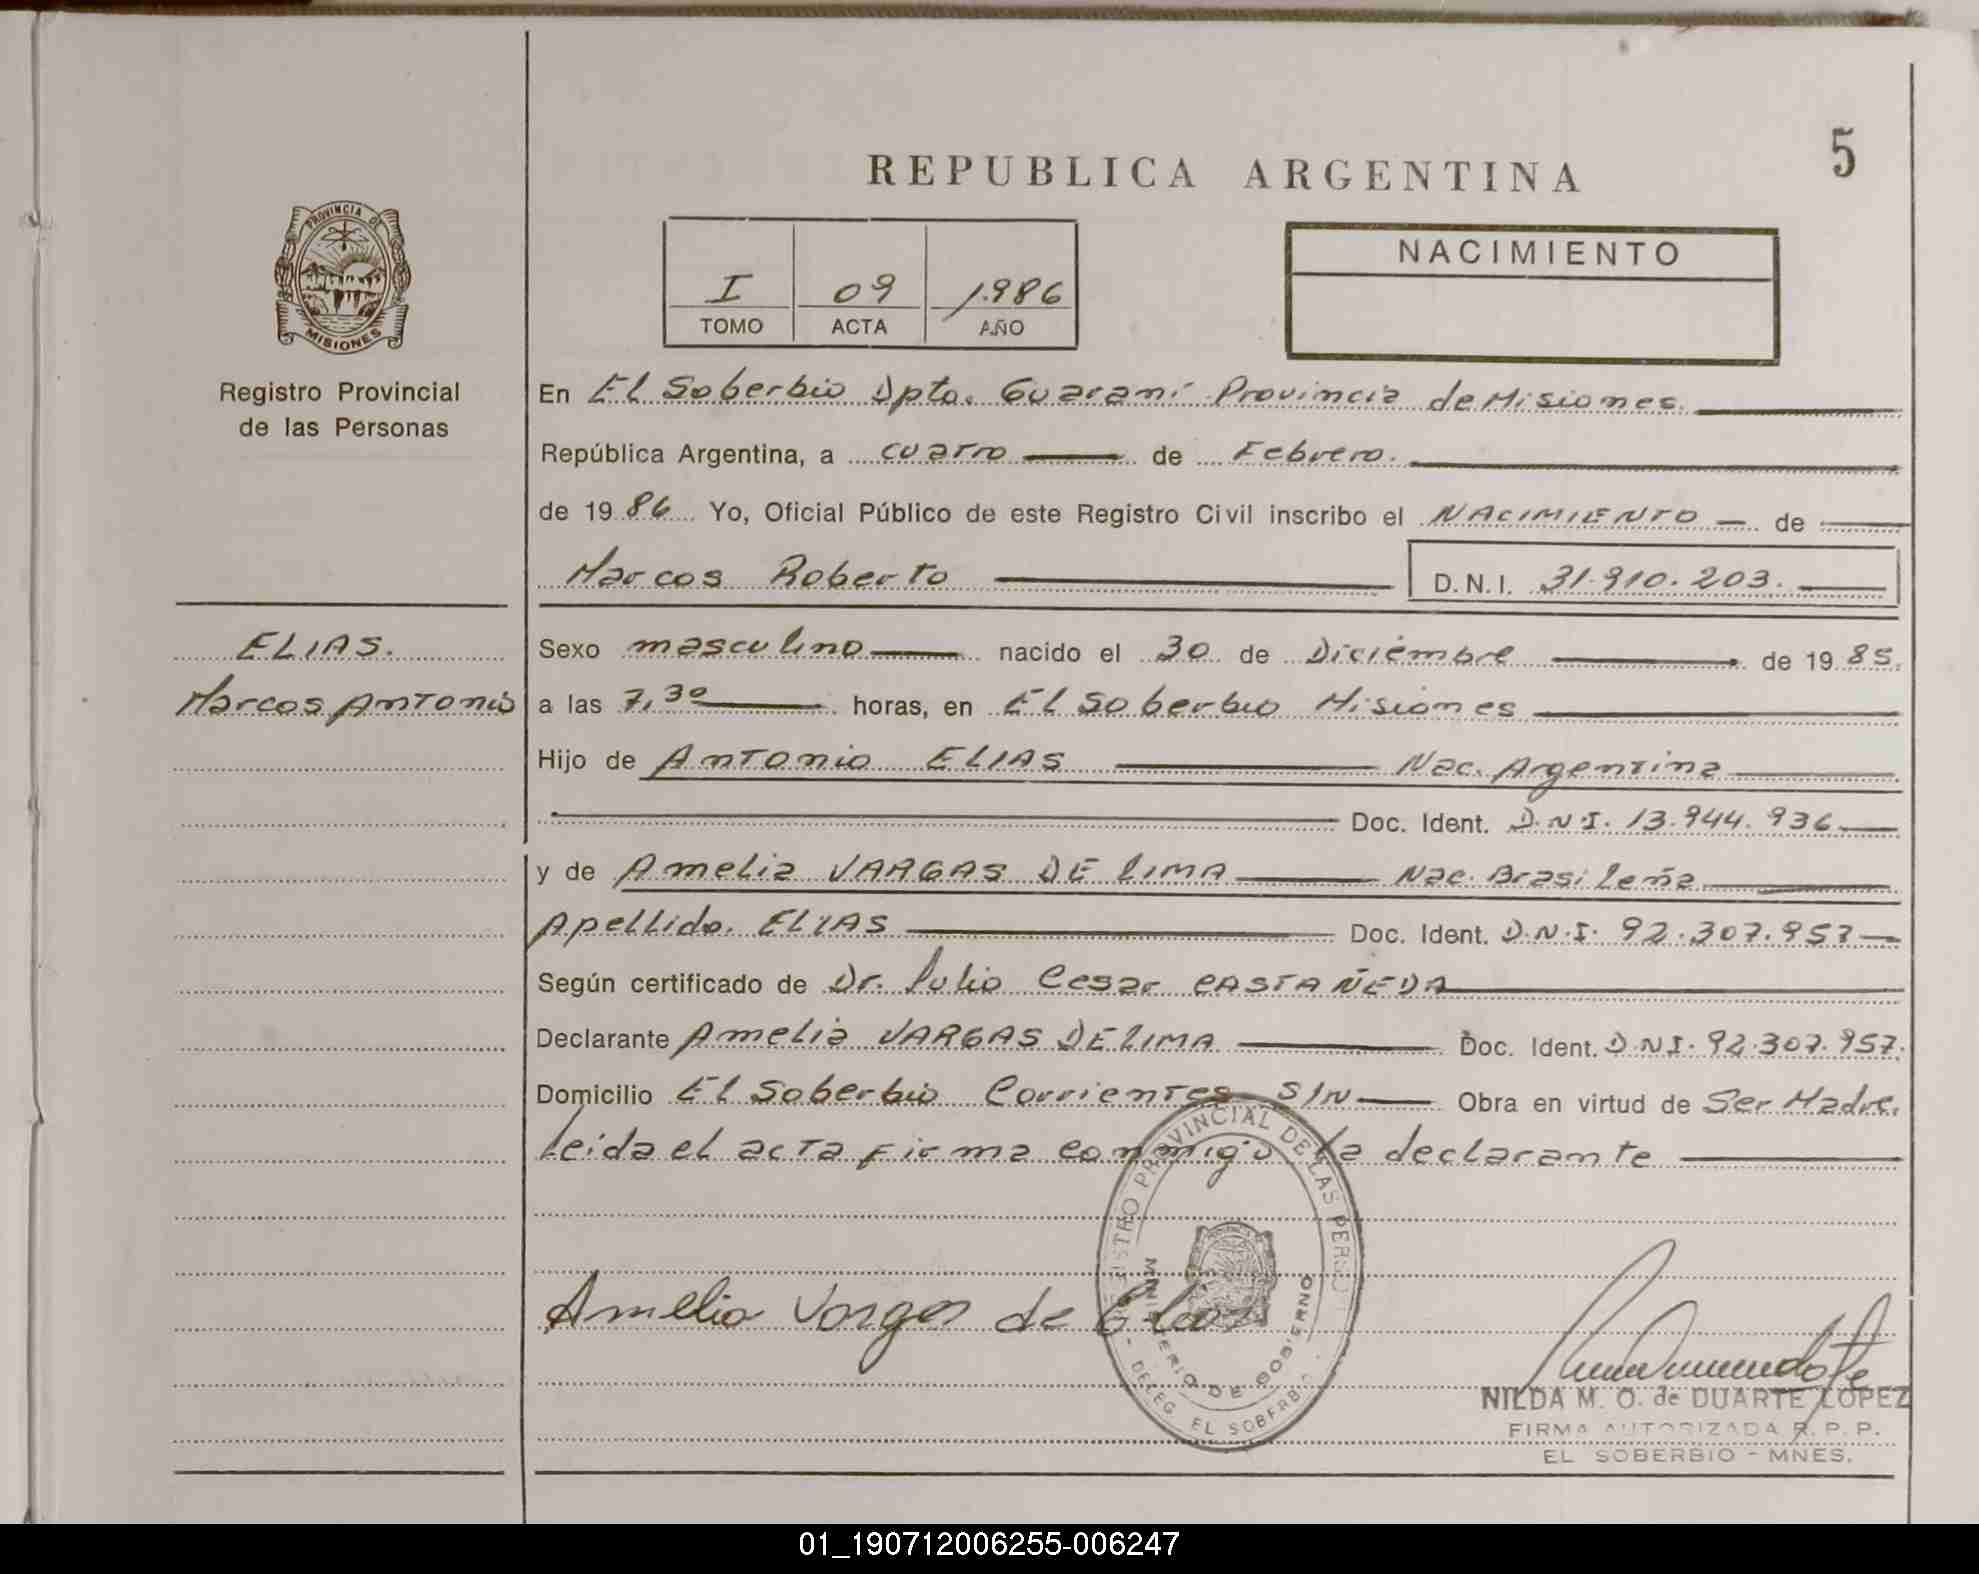 5
REPUBLICA ARGENTINA
PROVINCIA DE
MISIONES
Registro Provincial
de las Personas
I 09 1.986
TOMO ACTA AÑO
NACIMIENTO
En El Soberbio Dpto. Guaraní Provincia de Misiones.
República Argentina, a cuatro de Febrero.
de 19 86 Yo, Oficial Público de este Registro Civil inscribo el NACIMIENTO de
Marcos Roberto D.N.I. 31.910.203.
ELIAS.
Marcos Antonio
Sexo masculino nacido el 30 de Diciembre de 19 85.
a las 7,30 horas, en El Soberbio Misiones
Hijo de Antonio ELIAS Nac. Argentina
Doc. Ident. D.N.I. 13.944.936
y de Amelia VARGAS DE LIMA Nac. Brasileña
Apellido. ELIAS Doc. Ident. D.N.I. 92.307.957
Según certificado de Dr. Julio Cesar CASTAÑEDA
Declarante Amelia VARGAS DE LIMA Doc. Ident. D.N.I. 92.307.957.
Domicilio El Soberbio Corrientes S/N Obra en virtud de Ser Madre.
Leída el acta firma conmigo la declarante
Amelia Vargas de
REGISTRO PROVINCIAL DE LAS PERSO
MINISTERIO DE GOBIERNO
- DELEG. EL SOBERBIO -
NILDA M. O. de DUARTE LOPEZ
FIRMA AUTORIZADA R. P. P.
EL SOBERBIO - MNES.
01_190712006255-006247